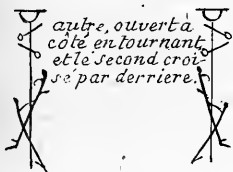 autre, ouvert à
côté en tournant
et le second croi-
sé par derriere.